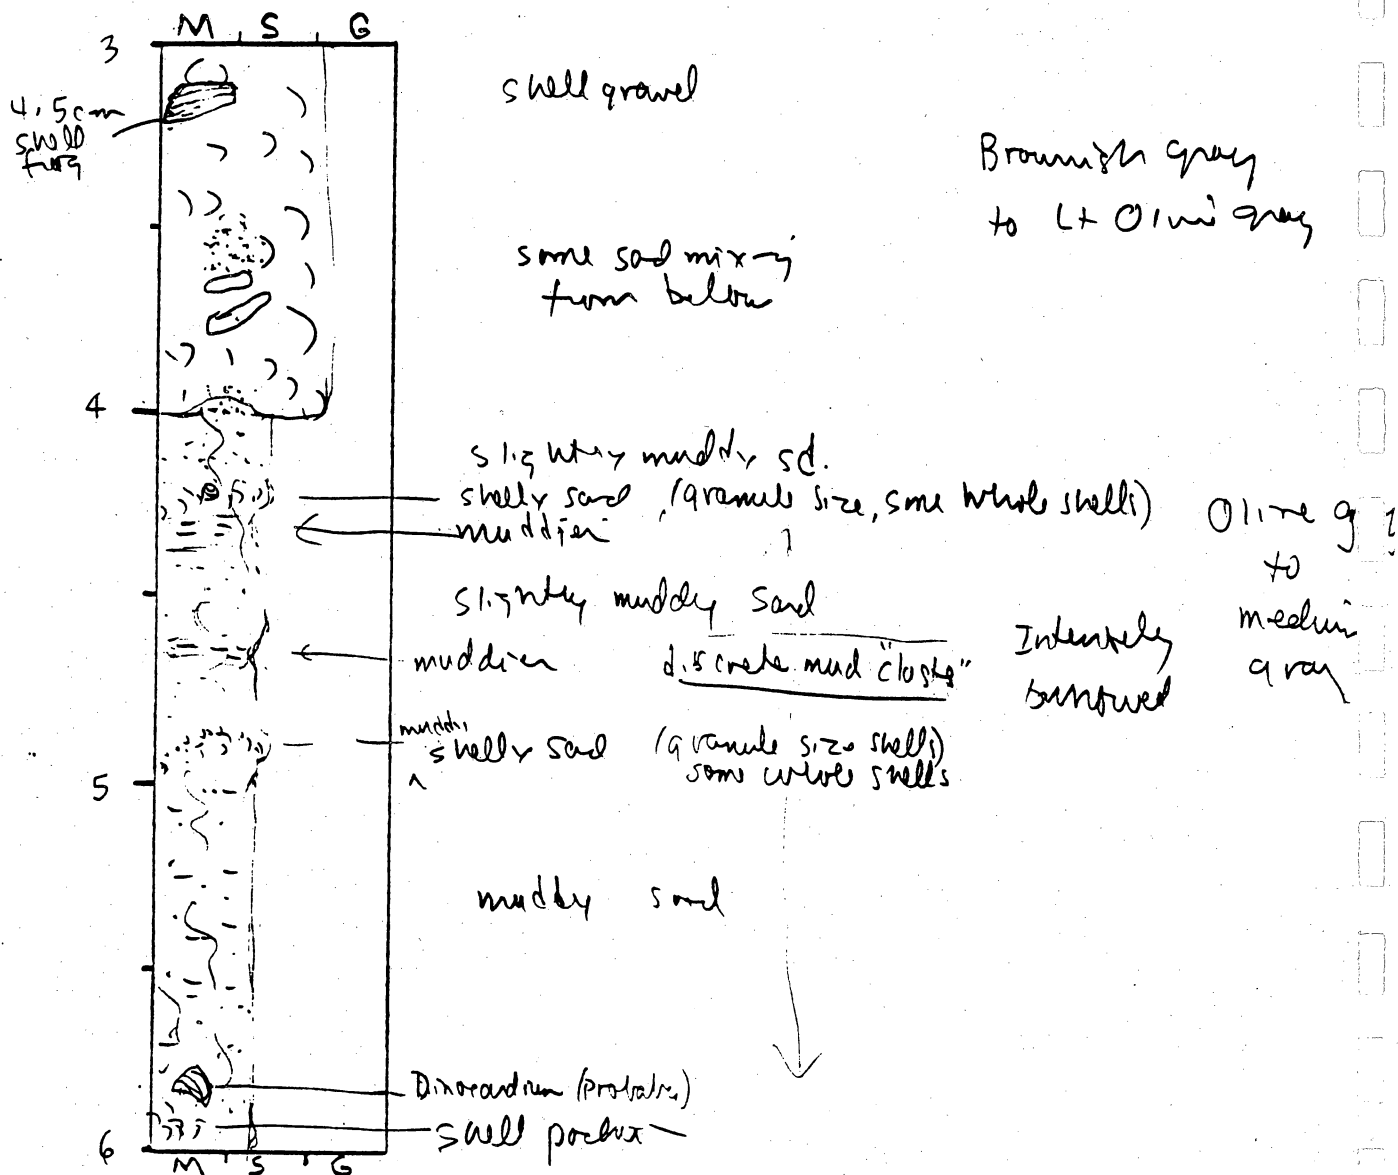 M S G
3
shell gravel
4.5cm
shell
frag
Brownish gray
to Lt Olive gray
some sad mixing
from below
4
slightly muddy sd.
shelly sand (granule size, some whole shells)
muddier
Olive g
to
medium
gray
slightly muddy sand
muddier
discrete mud "clasts"
Intensely
burrowed
muddy
shelly sand (granule size shells)
some whole shells
5
muddy sand
Dinocardium (probably)
shell pocket
6
M S G